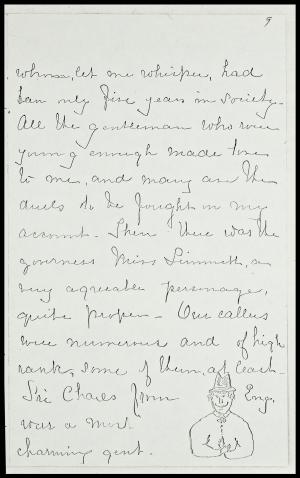 9
whom, let me whisper, had
been only five years in society.
All the gentleman who were
young enough made love
to me, and many are the
duels to be fought on my
account. Then there was the
governess Miss Simmett, a
very agreeable personage,
quite proper. Our callers
were numerous and of high
rank, some of them, at least.
Sir Charles from Eng.
was a most
charming gent.